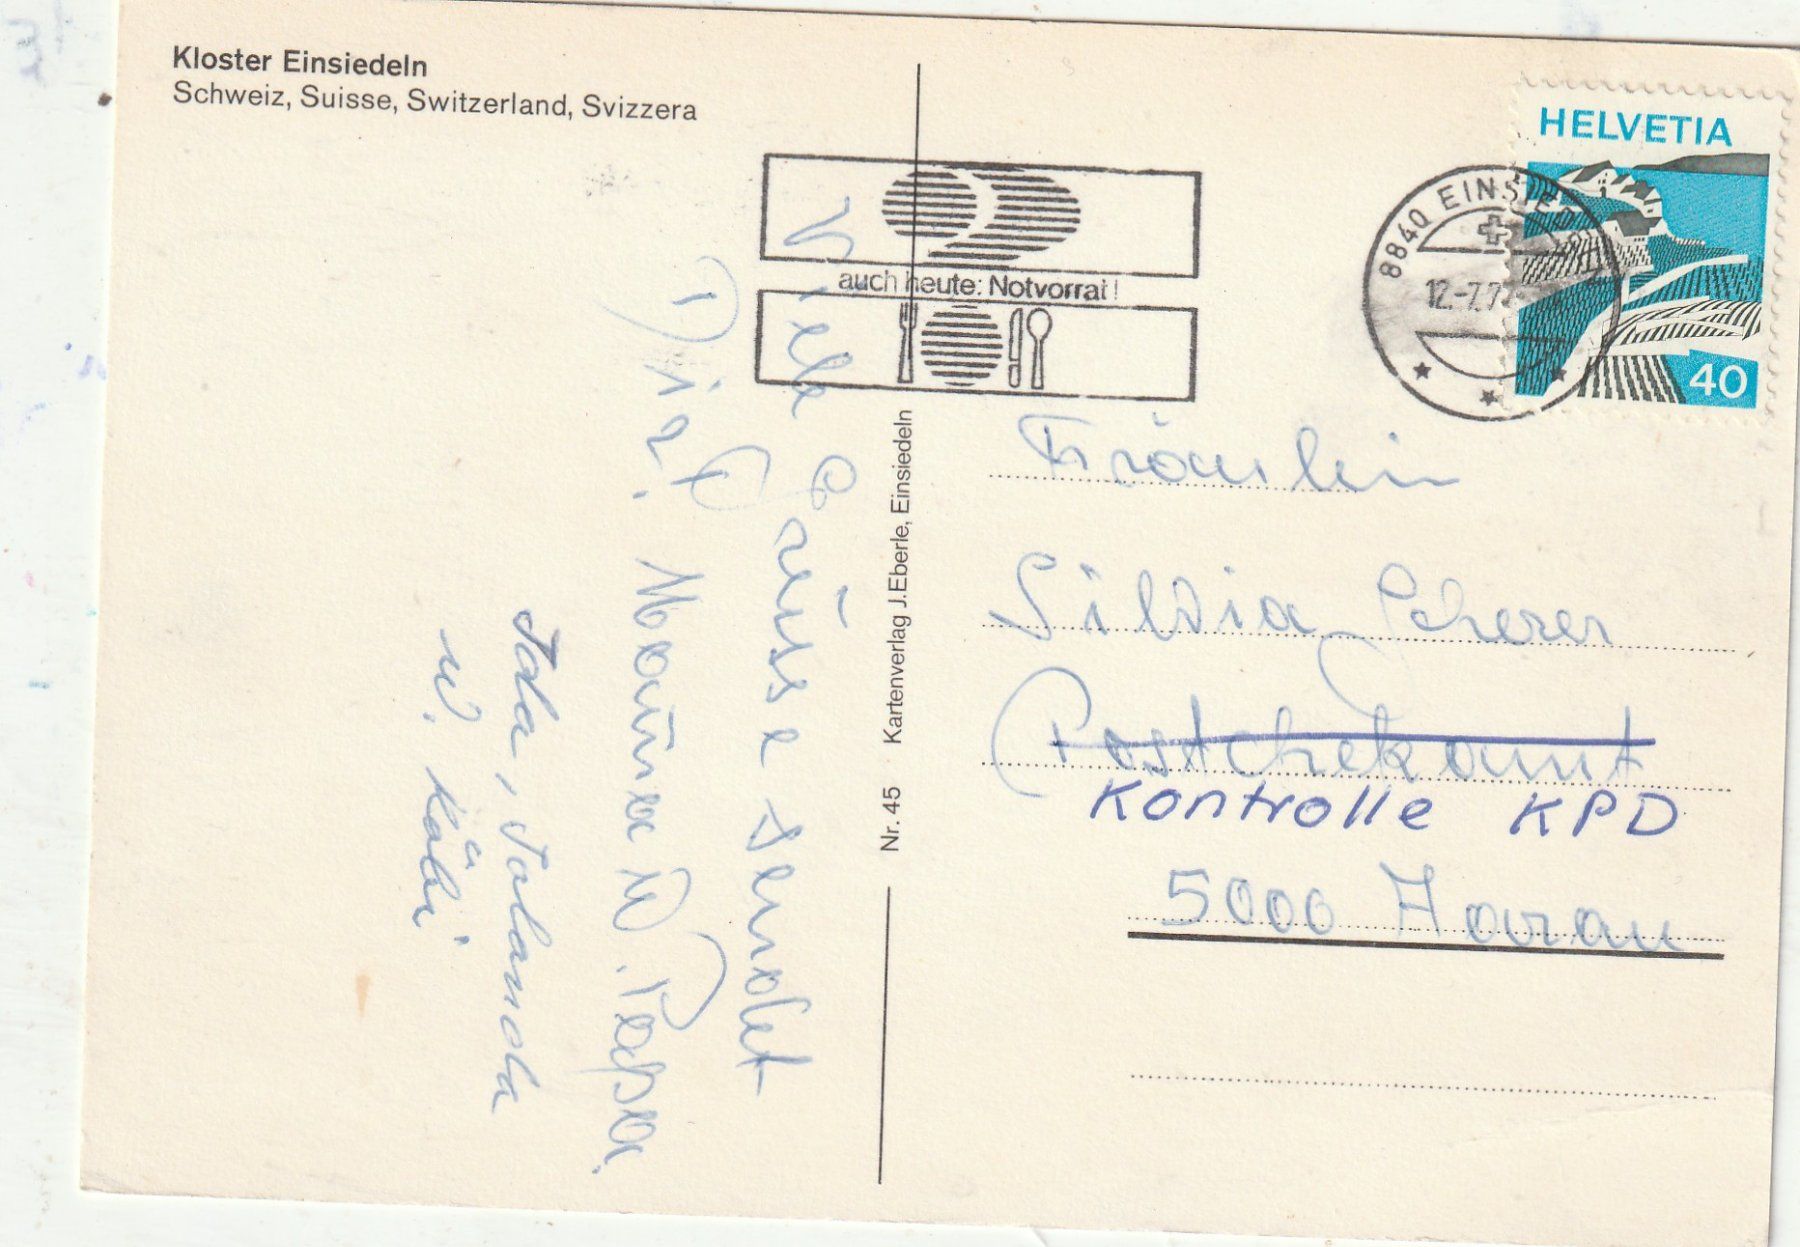 Kloster Einsiedeln
Schweiz, Suisse, Switzerland, Svizzera
auch heute: Notvorrat!
8840 EINSIEDELN
12.-7.7
HELVETIA
40
Viele Grüsse sendet
Dir. Mama u. Papa.
Ida, Jolanda
u. Käbi
Nr. 45 Kartenverlag J. Eberle, Einsiedeln
Fräulein
Silvia Scherer
Postchekamt
Kontrolle KPD
5000 Aarau